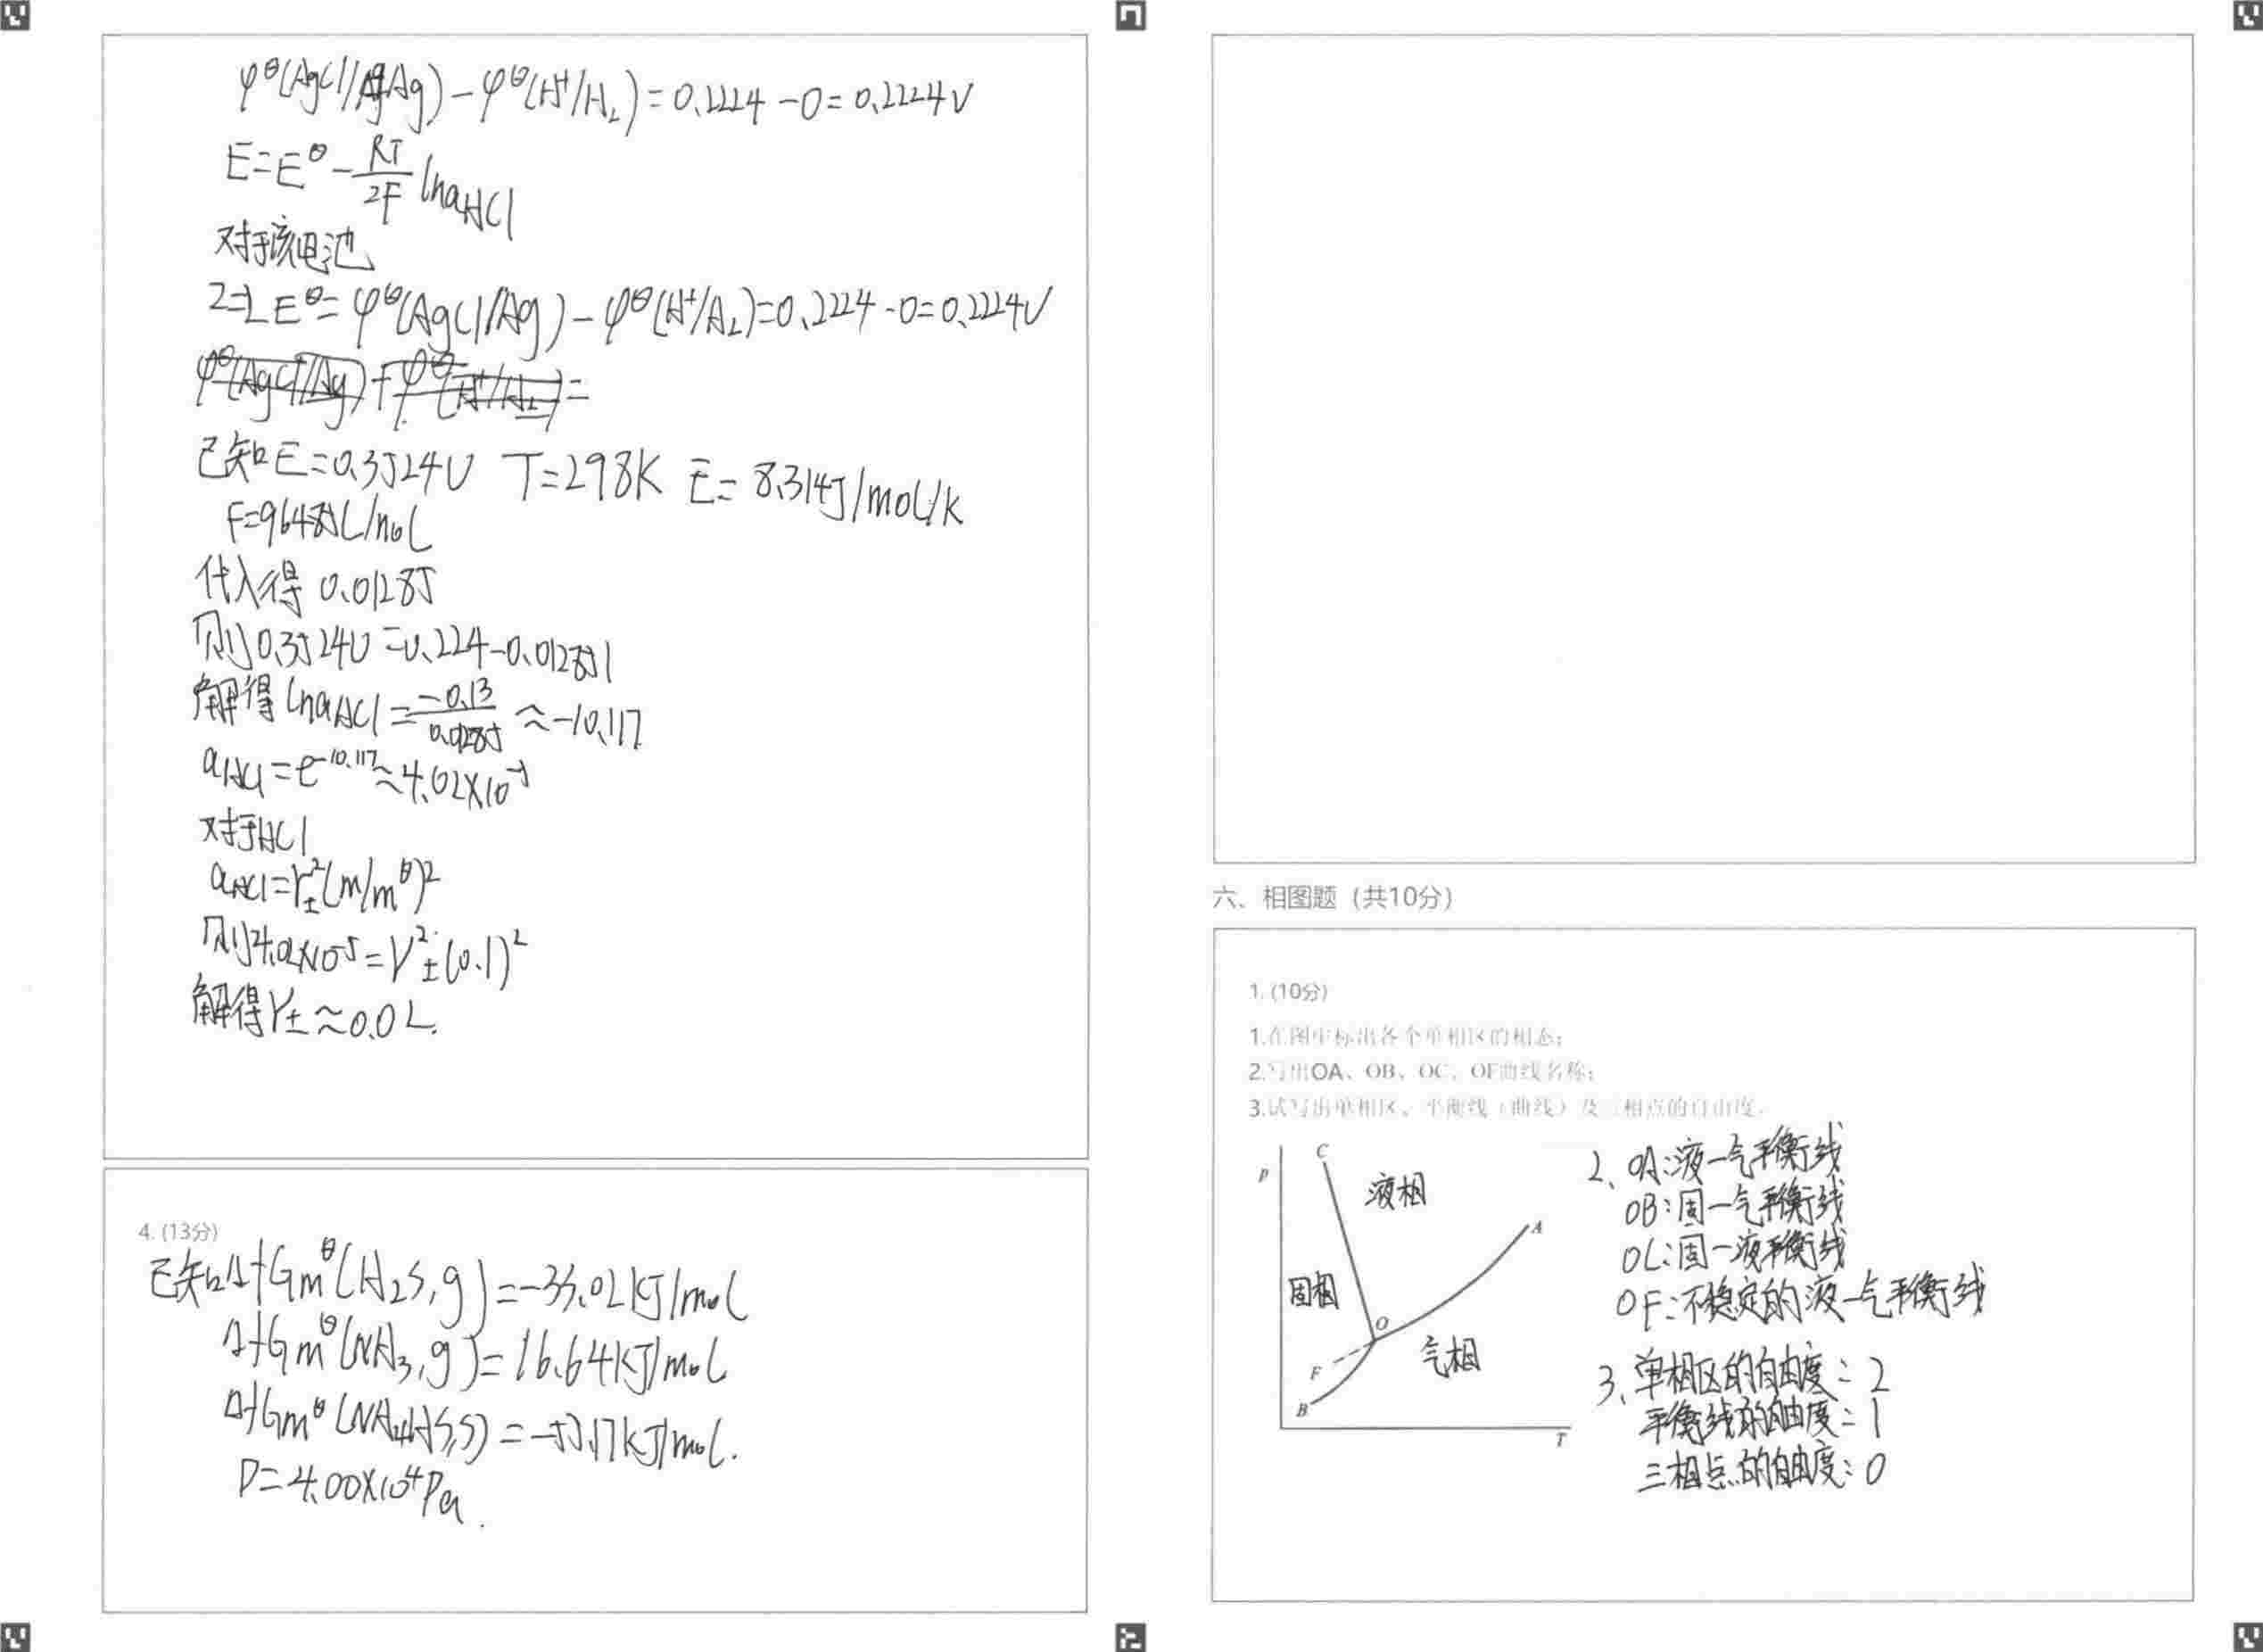 φ^θ(AgCl/Ag)-φ^θ(H⁺/H₂)=0.2224-0=0.2224V
E=E^θ-RT/2F lna_HCl
对于该电池
Z=2 E^θ=φ^θ(AgCl/Ag)-φ^θ(H⁺/H₂)=0.2224-0=0.2224V
已知E=0.3524V T=298K E=8.314J/mol/k
F=96485C/mol
代入得 0.01285
则0.3524V=0.224-0.01285
解得lna_HCl=-0.13/0.01285≈-10.117
a_HCl=e^-10.117≈4.02×10^-5
对于HCl
a_HCl=γ±²(m/m^θ)²
则4.02×10^-5=γ±²(0.1)²
解得γ±≈0.02.
4. (13分)
已知ΔfGm^θ(H₂S,g)=-33.02kJ/mol
ΔfGm^θ(NH₃,g)=16.64kJ/mol
ΔfGm^θ(NH₄HS,s)=-55.17kJ/mol.
P=4.00×10⁴Pa.
六、相图题（共10分）
1. (10分)
1.在图中标出各个单相区的相态;
2.写出OA、OB、OC、OF曲线名称;
3.试写出单相区、平衡线（曲线）及三相点的自由度。
P
C
液相
A
固相
O
气相
F
B
T
2、OA:液-气平衡线
OB:固-气平衡线
OC:固-液平衡线
OF:不稳定的液-气平衡线
3、单相区的自由度:2
平衡线的自由度:1
三相点的自由度:0